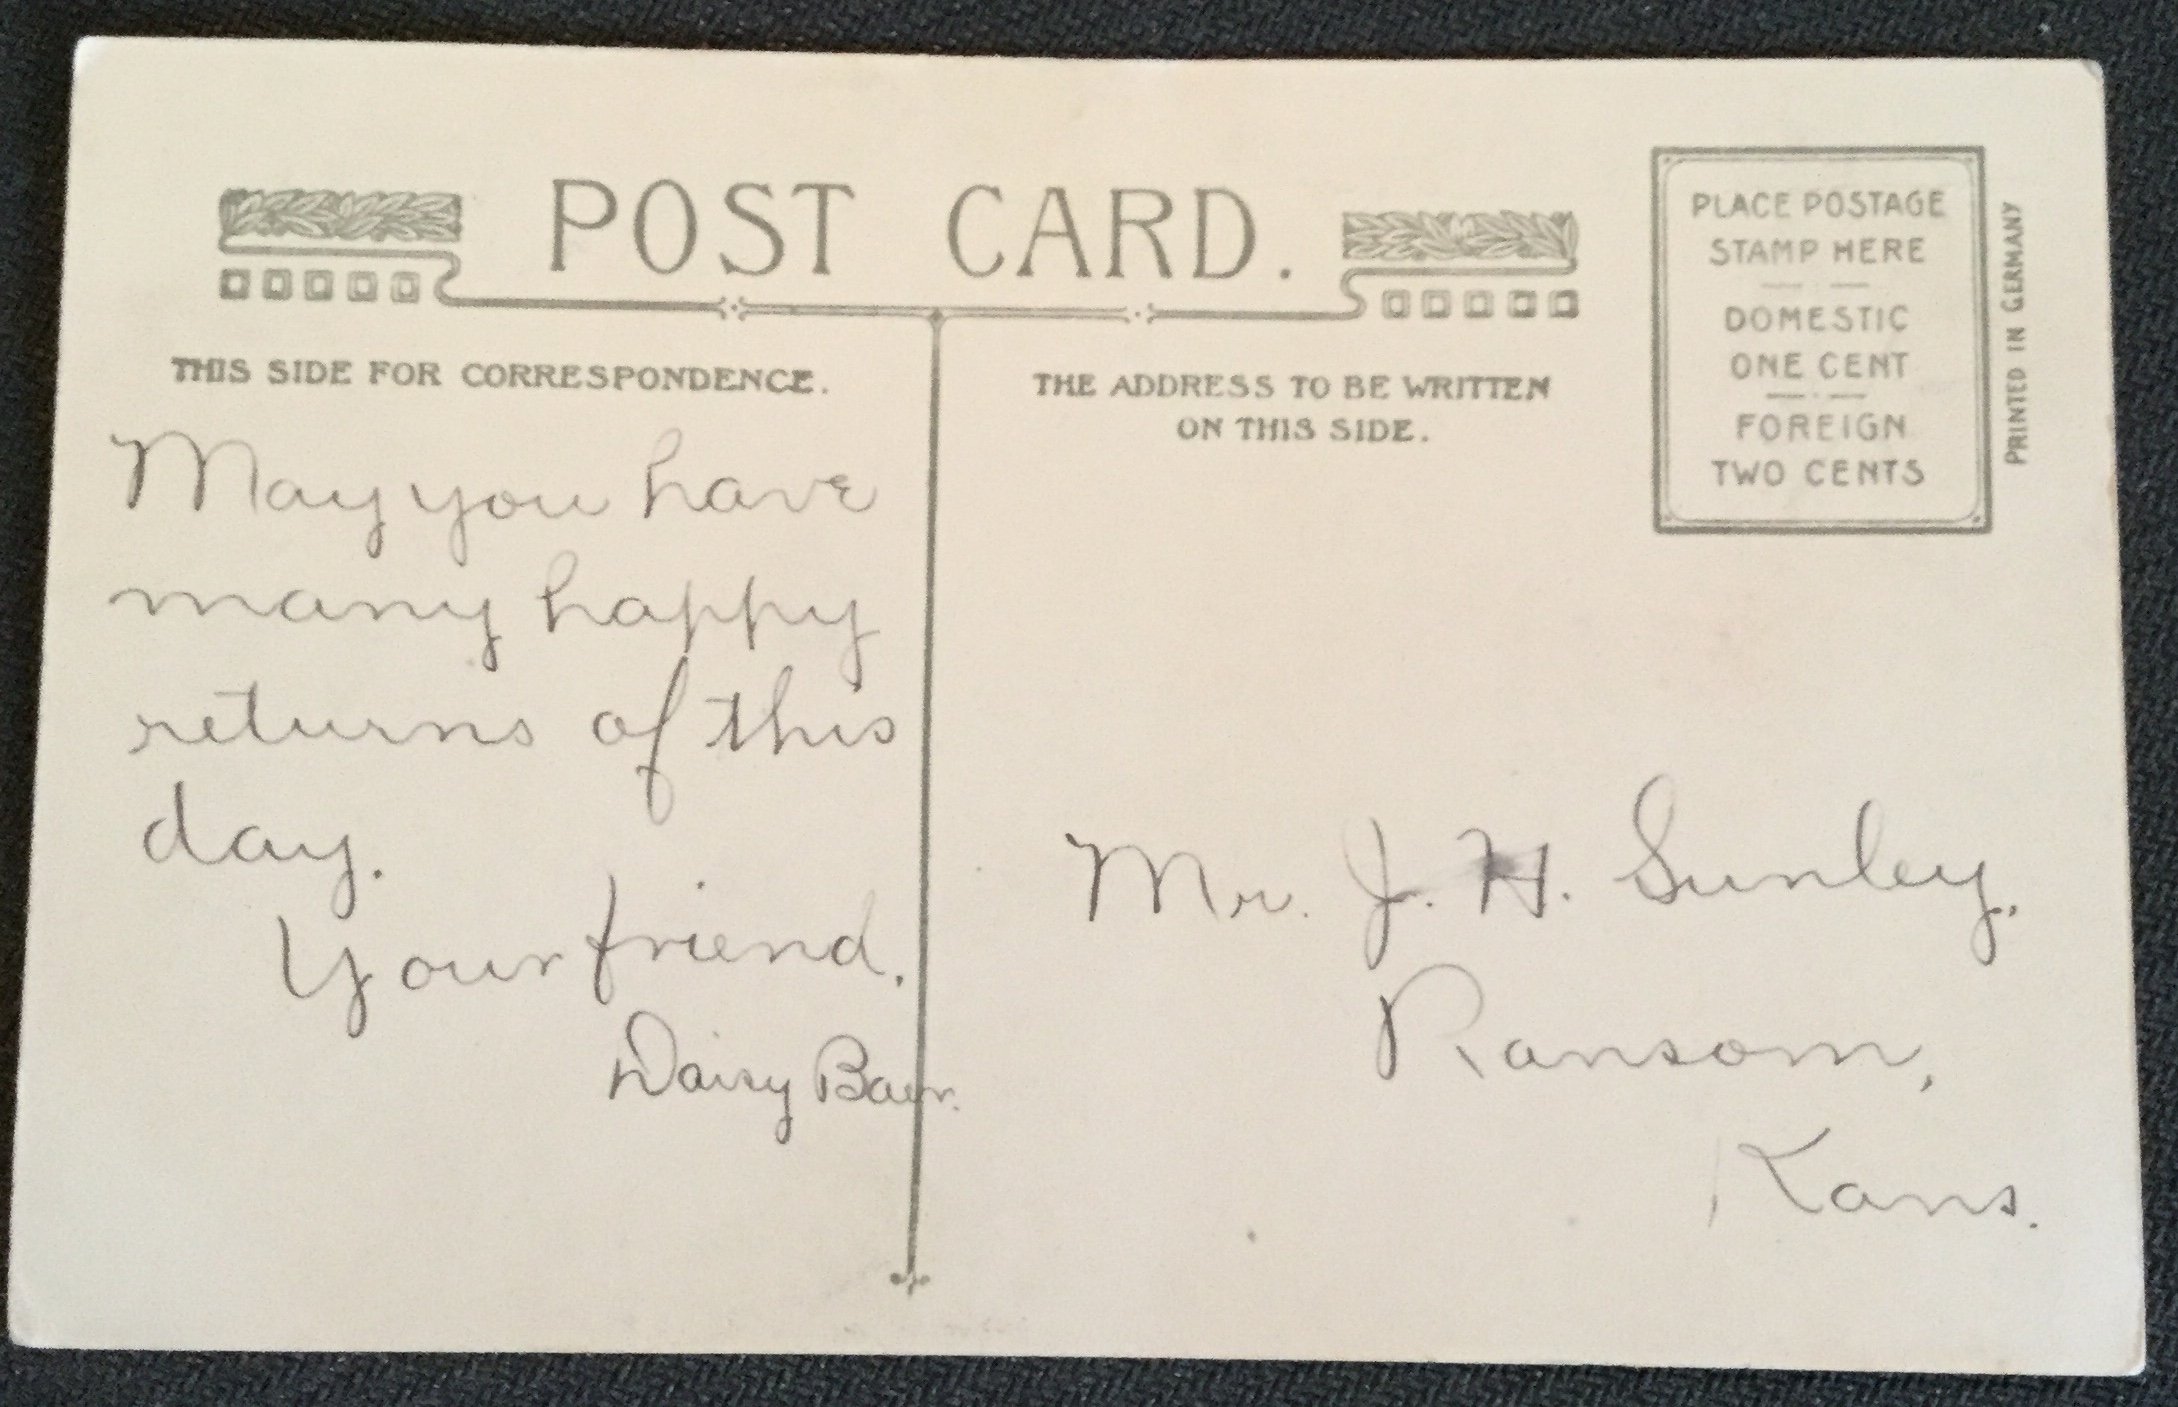 POST CARD.
THIS SIDE FOR CORRESPONDENCE.
May you have
many happy
returns of this
day.
Your friend.
Daisy Baer.
THE ADDRESS TO BE WRITTEN
ON THIS SIDE.
PLACE POSTAGE
STAMP HERE
DOMESTIC
ONE CENT
FOREIGN
TWO CENTS
PRINTED IN GERMANY
Mr. J. H. Sunley.
Ransom,
Kans.